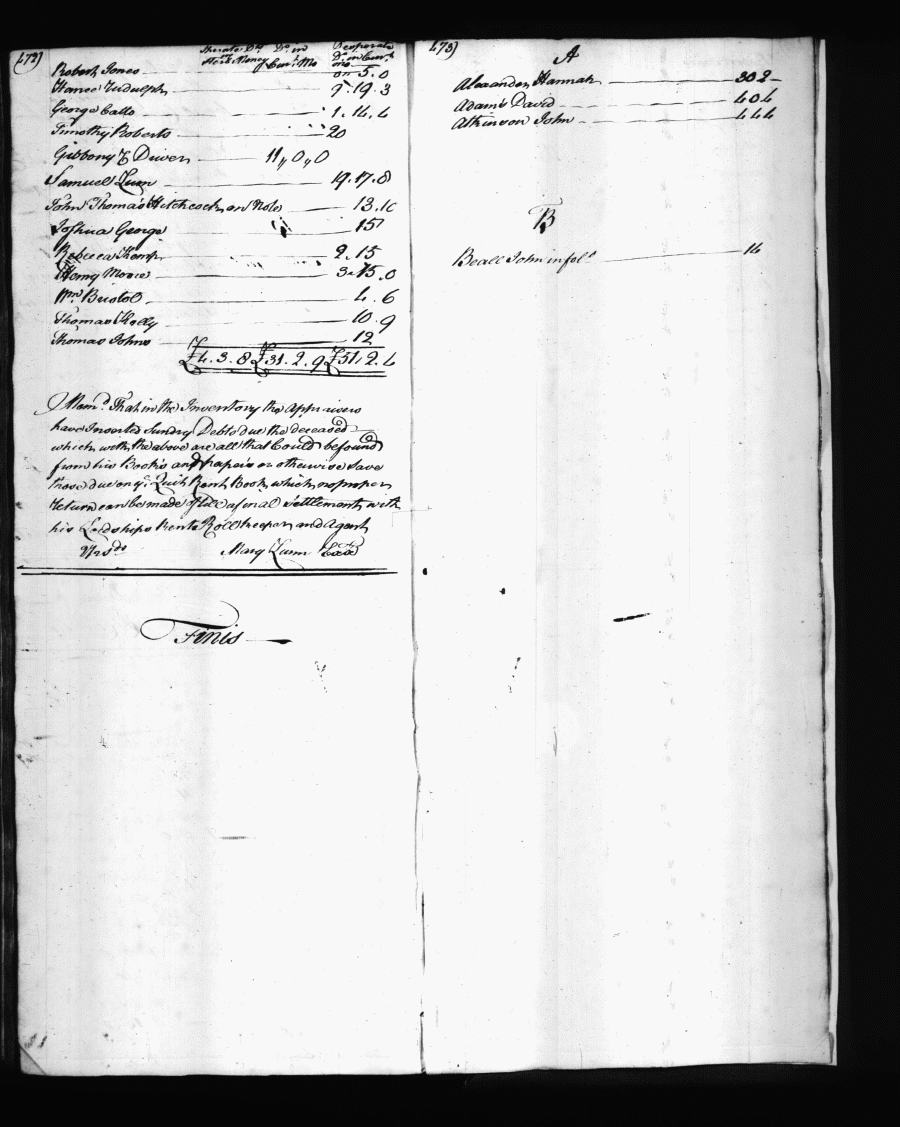 472)
Sperate Dts Do in Desperate
Sterl Money Curr.t Mo Do in Curr.t mo
Robert Jones 0 .. 5 . 0
Hance Rudulph 7 . 19 . 3
George Catto 1 . 14 . 4
Timothy Roberts 20
Gibbony & Diven 11 ,, 0 ,, 0
Samuel Lum 19 . 17 . 8
John Thomas Hitchcock on Note 13 . 10
Joshua George 15
Rebecca Kemp 2 . 15
Henry Moore 3 . 15 . 0
Wm. Bristol 4 . 6
Thomas Kelly 10 . 9
Thomas Johns 12
£4 . 3 . 8 £31 . 2 . 9 £51 . 2 . 4
Mem.d That in the Inventory the Apprisers
have Inserted Sundry Debts due the deceased
which with the above are all that Could be found
from his Books and papers or otherwise Save
those due on ye. Quit Rent Book which no proper
Return can be made of till a final Settlement with
his Lordships Rente Roll keeper and Agent
Mary Lum
Finis
473)
A
Alexander Hannah 302
Adams David 404
Atkinson John 444
B
Beall John in fol.o 14